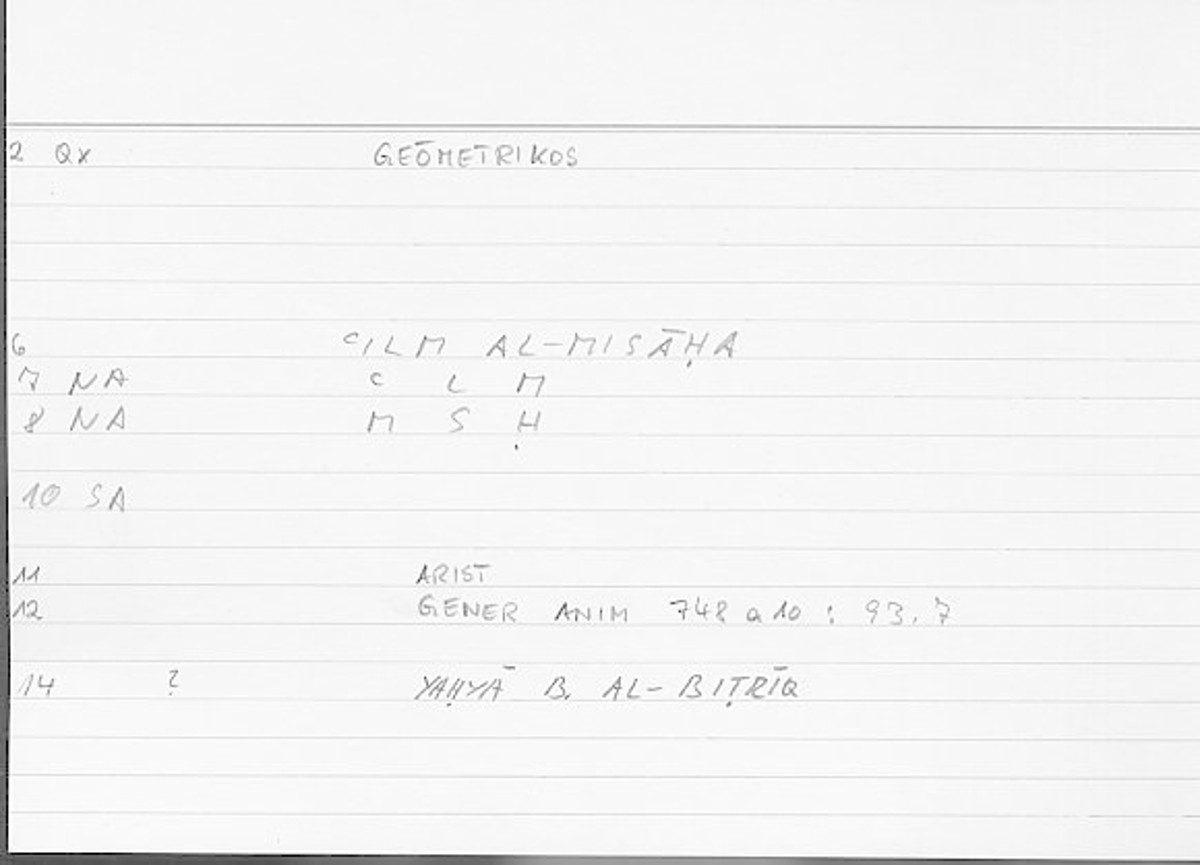 2 Qx GEŌMETRIKOS
6 ᶜILM AL-MISĀḤA
7 NA ᶜ L M
8 NA M S Ḥ
10 SA
11 ARIST
12 GENER ANIM 748 a 10 : 93.7
14 ? YAḤYĀ B. AL-BIṬRĪQ